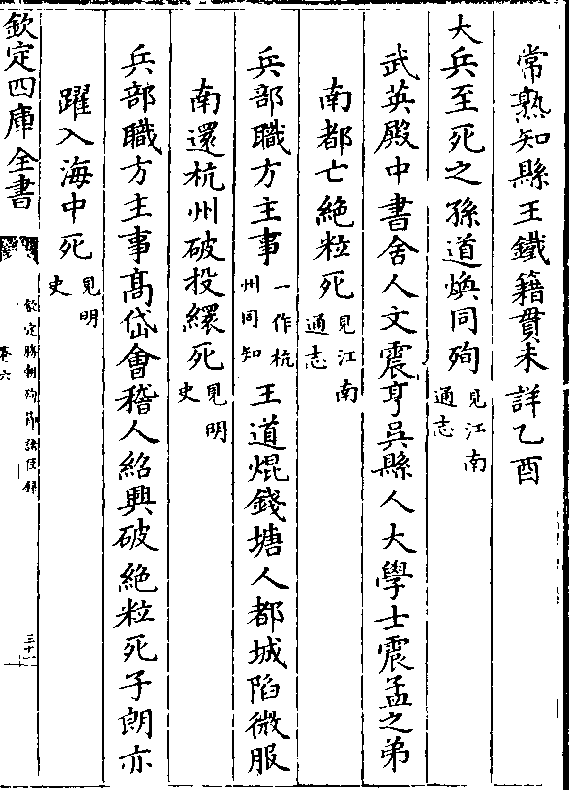 常熟知縣王鐵籍貫未詳乙酉
大兵至死之孫道煥同殉見江南通志
武英殿中書舍人文震亨吳縣人大學士震孟之弟
南都亡絶粒死見江南通志
兵部職方主事一作杭州同知王道焜錢塘人都城陷微服
南還杭州破投繯死見明史
兵部職方主事高岱會稽人紹興破絶粒死子朗亦
躍入海中死見明史
欽定四庫全書
欽定勝朝殉節諸臣錄
卷六
三十一